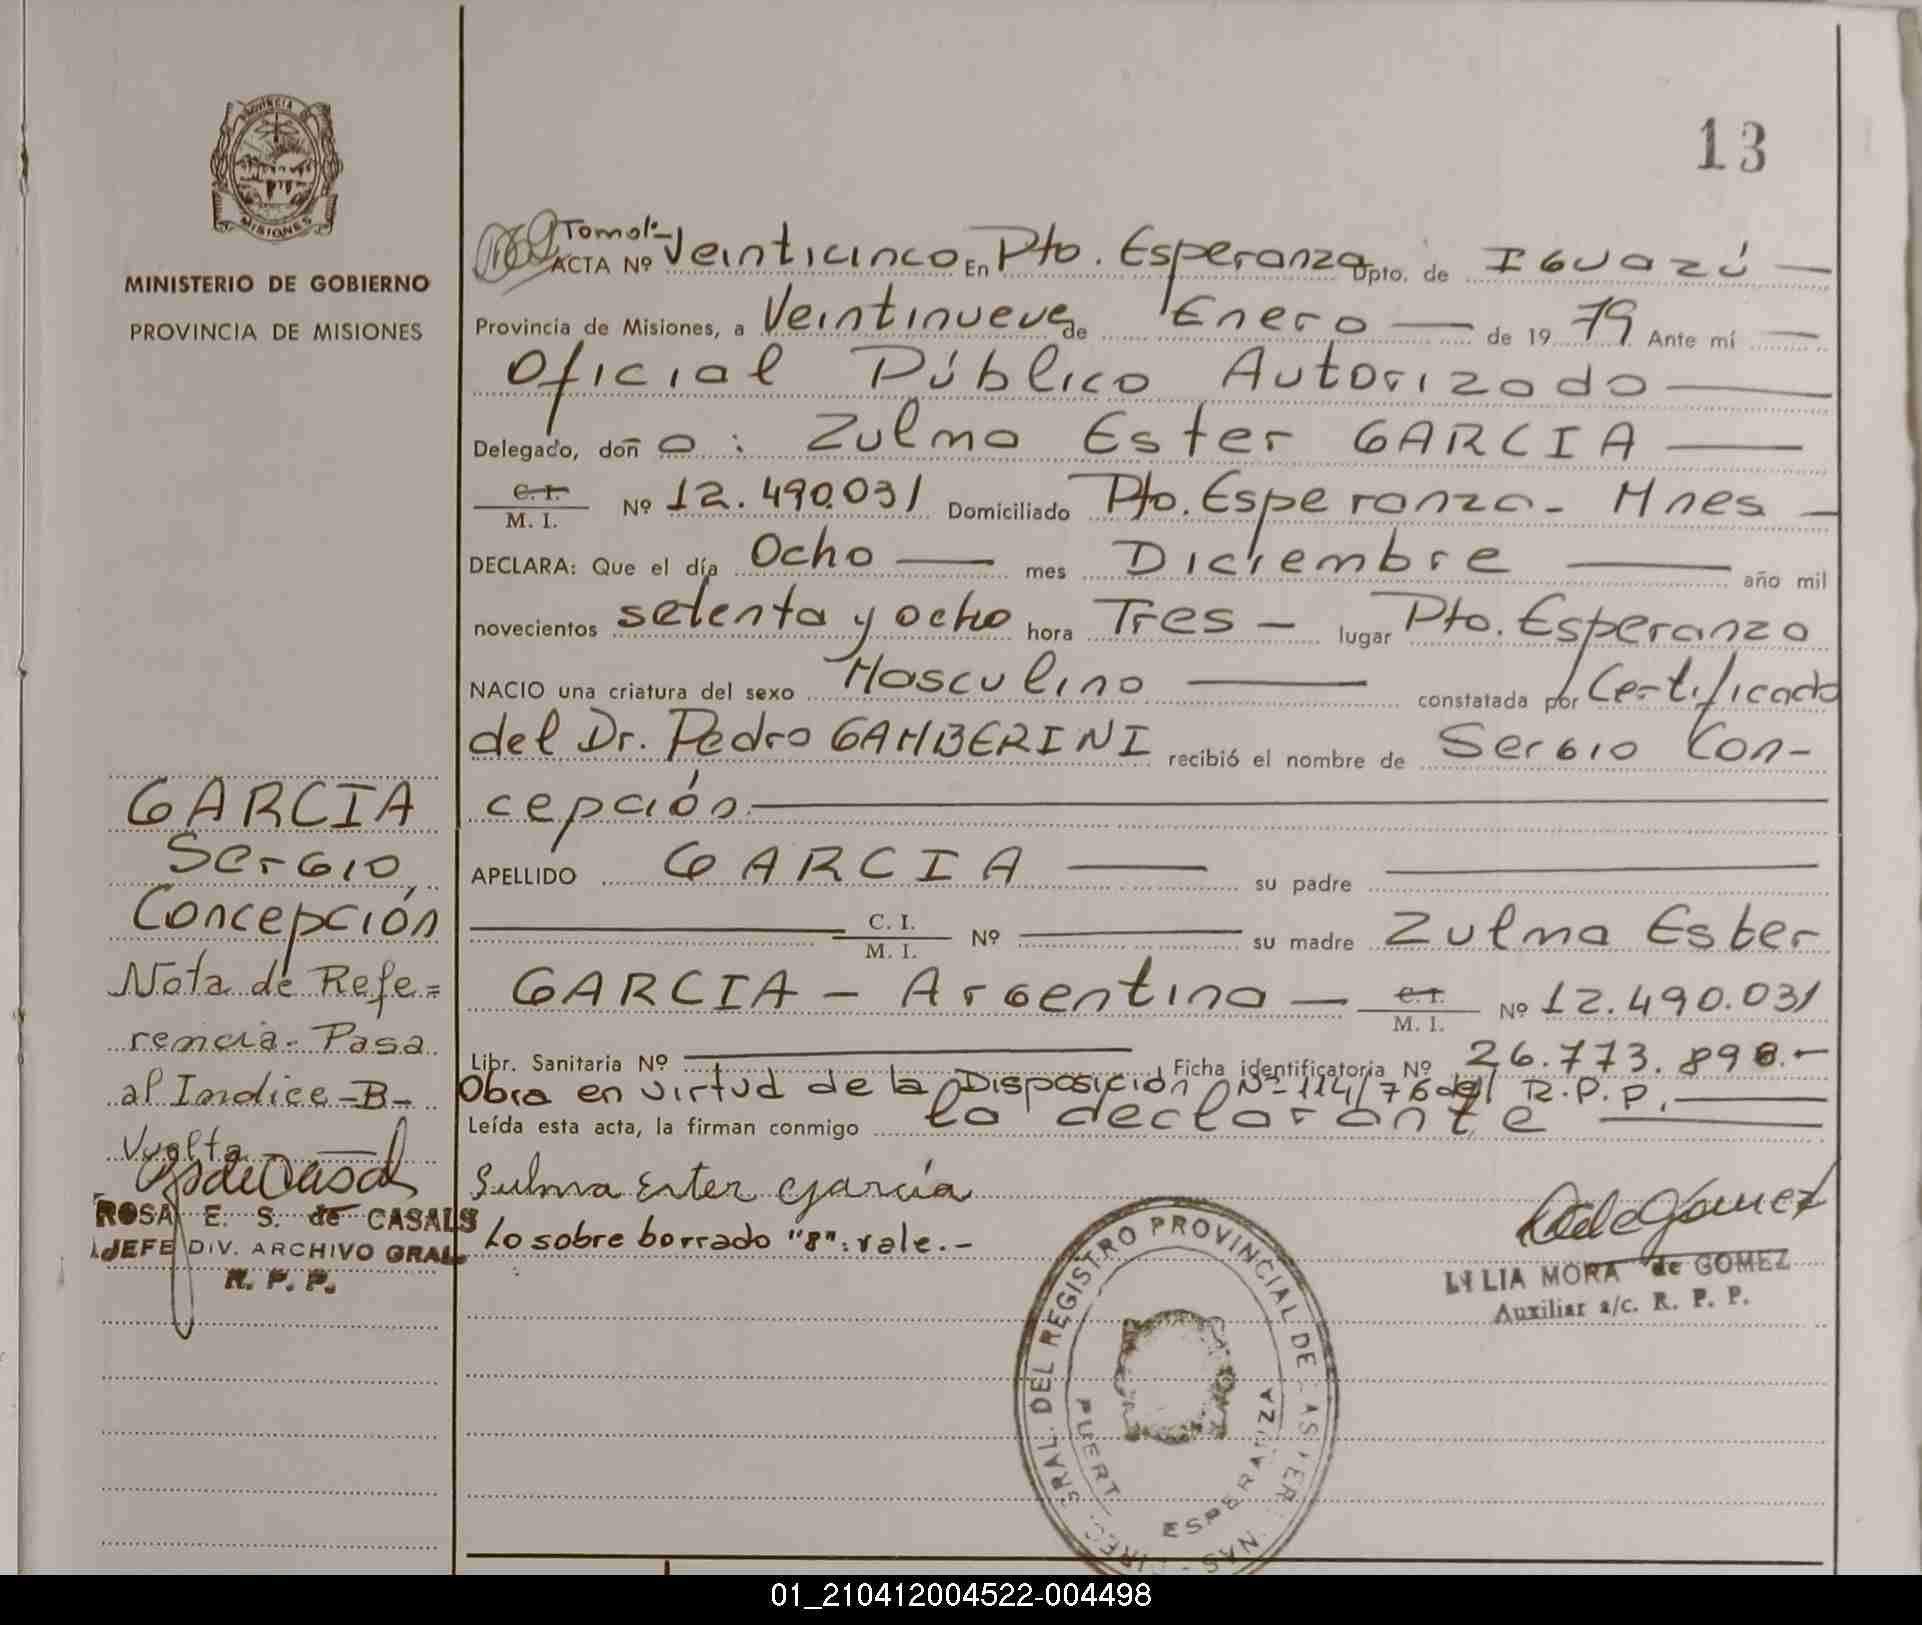 13
PROVINCIA
MISIONES
MINISTERIO DE GOBIERNO
PROVINCIA DE MISIONES
Tomo 1º-
ACTA Nº Veinticinco En Pto. Esperanza Dpto. de Iguazú —
Provincia de Misiones, a Veintinueve de Enero — de 19 79 Ante mí —
Oficial Público Autorizado —
Delegado, doñ a : Zulma Ester GARCIA —
C. I.
M. I. Nº 12.490.031 Domiciliado Pto. Esperanza - Mnes —
DECLARA: Que el día Ocho — mes Diciembre — año mil
novecientos setenta y ocho hora Tres — lugar Pto. Esperanza
NACIO una criatura del sexo Masculino — constatada por Certificado
del Dr. Pedro GAMBERINI recibió el nombre de Sergio Con-
cepción —
APELLIDO GARCIA — su padre —
— C. I.
M. I. Nº — su madre Zulma Ester
GARCIA - Argentina — C. I.
M. I. Nº 12.490.031
Libr. Sanitaria Nº — Ficha identificatoria Nº 26.773.898.-
Obra en virtud de la Disposición Nº 114/76 del R.P.P. —
Leída esta acta, la firman conmigo la declarante —
Sulma Ester Garcia
Lo sobre borrado "8": vale.-
GARCIA
Sergio
Concepción
Nota de Refe=
rencia- Pasa
al Indice -B-
Vuelta —
ROSA E. S. de CASALS
JEFE DIV. ARCHIVO GRAL
R. P. P.
LILIA MORA de GOMEZ
Auxiliar a/c. R. P. P.
GRAL. DEL REGISTRO PROVINCIAL DE LAS PER
NAS - DIREC
PUERTO ESPERANZA
01_210412004522-004498